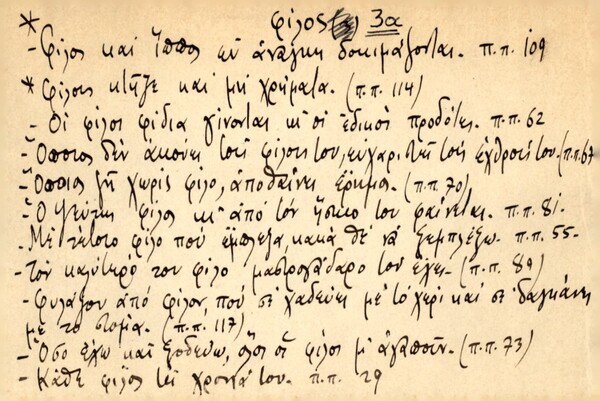 * φίλος 3α
- Φίλος καὶ ἵππος ἐν ἀνάγκῃ δοκιμάζονται. π.π. 109
* Φίλους κτῆζε καὶ μὴ χρήματα. (π.π. 114)
- Οἱ φίλοι φίδια γίνονται κι' οἱ ἐδικοὶ προδότες. π.π. 62
- Ὅποιος δὲν ἀκούει τοὺς φίλους του, εὐχαριστεῖ τοὺς ἐχθρούς του. (π.π. 67
- Ὅποιος ζῇ χωρὶς φίλο, ἀποθαίνει ἔρημα. (π.π. 70)
- Ὁ ψεύτης φίλος κι' ἀπὸ τὸν ἥσκιο του φαίνεται. π.π. 81.
- Μὲ τέτοιο φίλο ποὺ ἔμπλεξα, κακὰ θὲ νὰ ξεμπλέξω. π.π. 55.
- Τὸν καλύτερό του φίλο μαστρογάδαρο τὸν ἔχει. (π.π. 89)
- Φυλάξου ἀπὸ φίλον, ποὺ σὲ χαδεύει μὲ τὸ χέρι καὶ σὲ δαγκάνει
μὲ τὸ στόμα. (π.π. 117)
- Ὅσο ἔχω καὶ ξοδεύω, ὅλοι οἱ φίλοι μ' ἀγαποῦν. (π.π. 73)
- Κάθε φίλος μὲ χρονιά του. π.π. 29